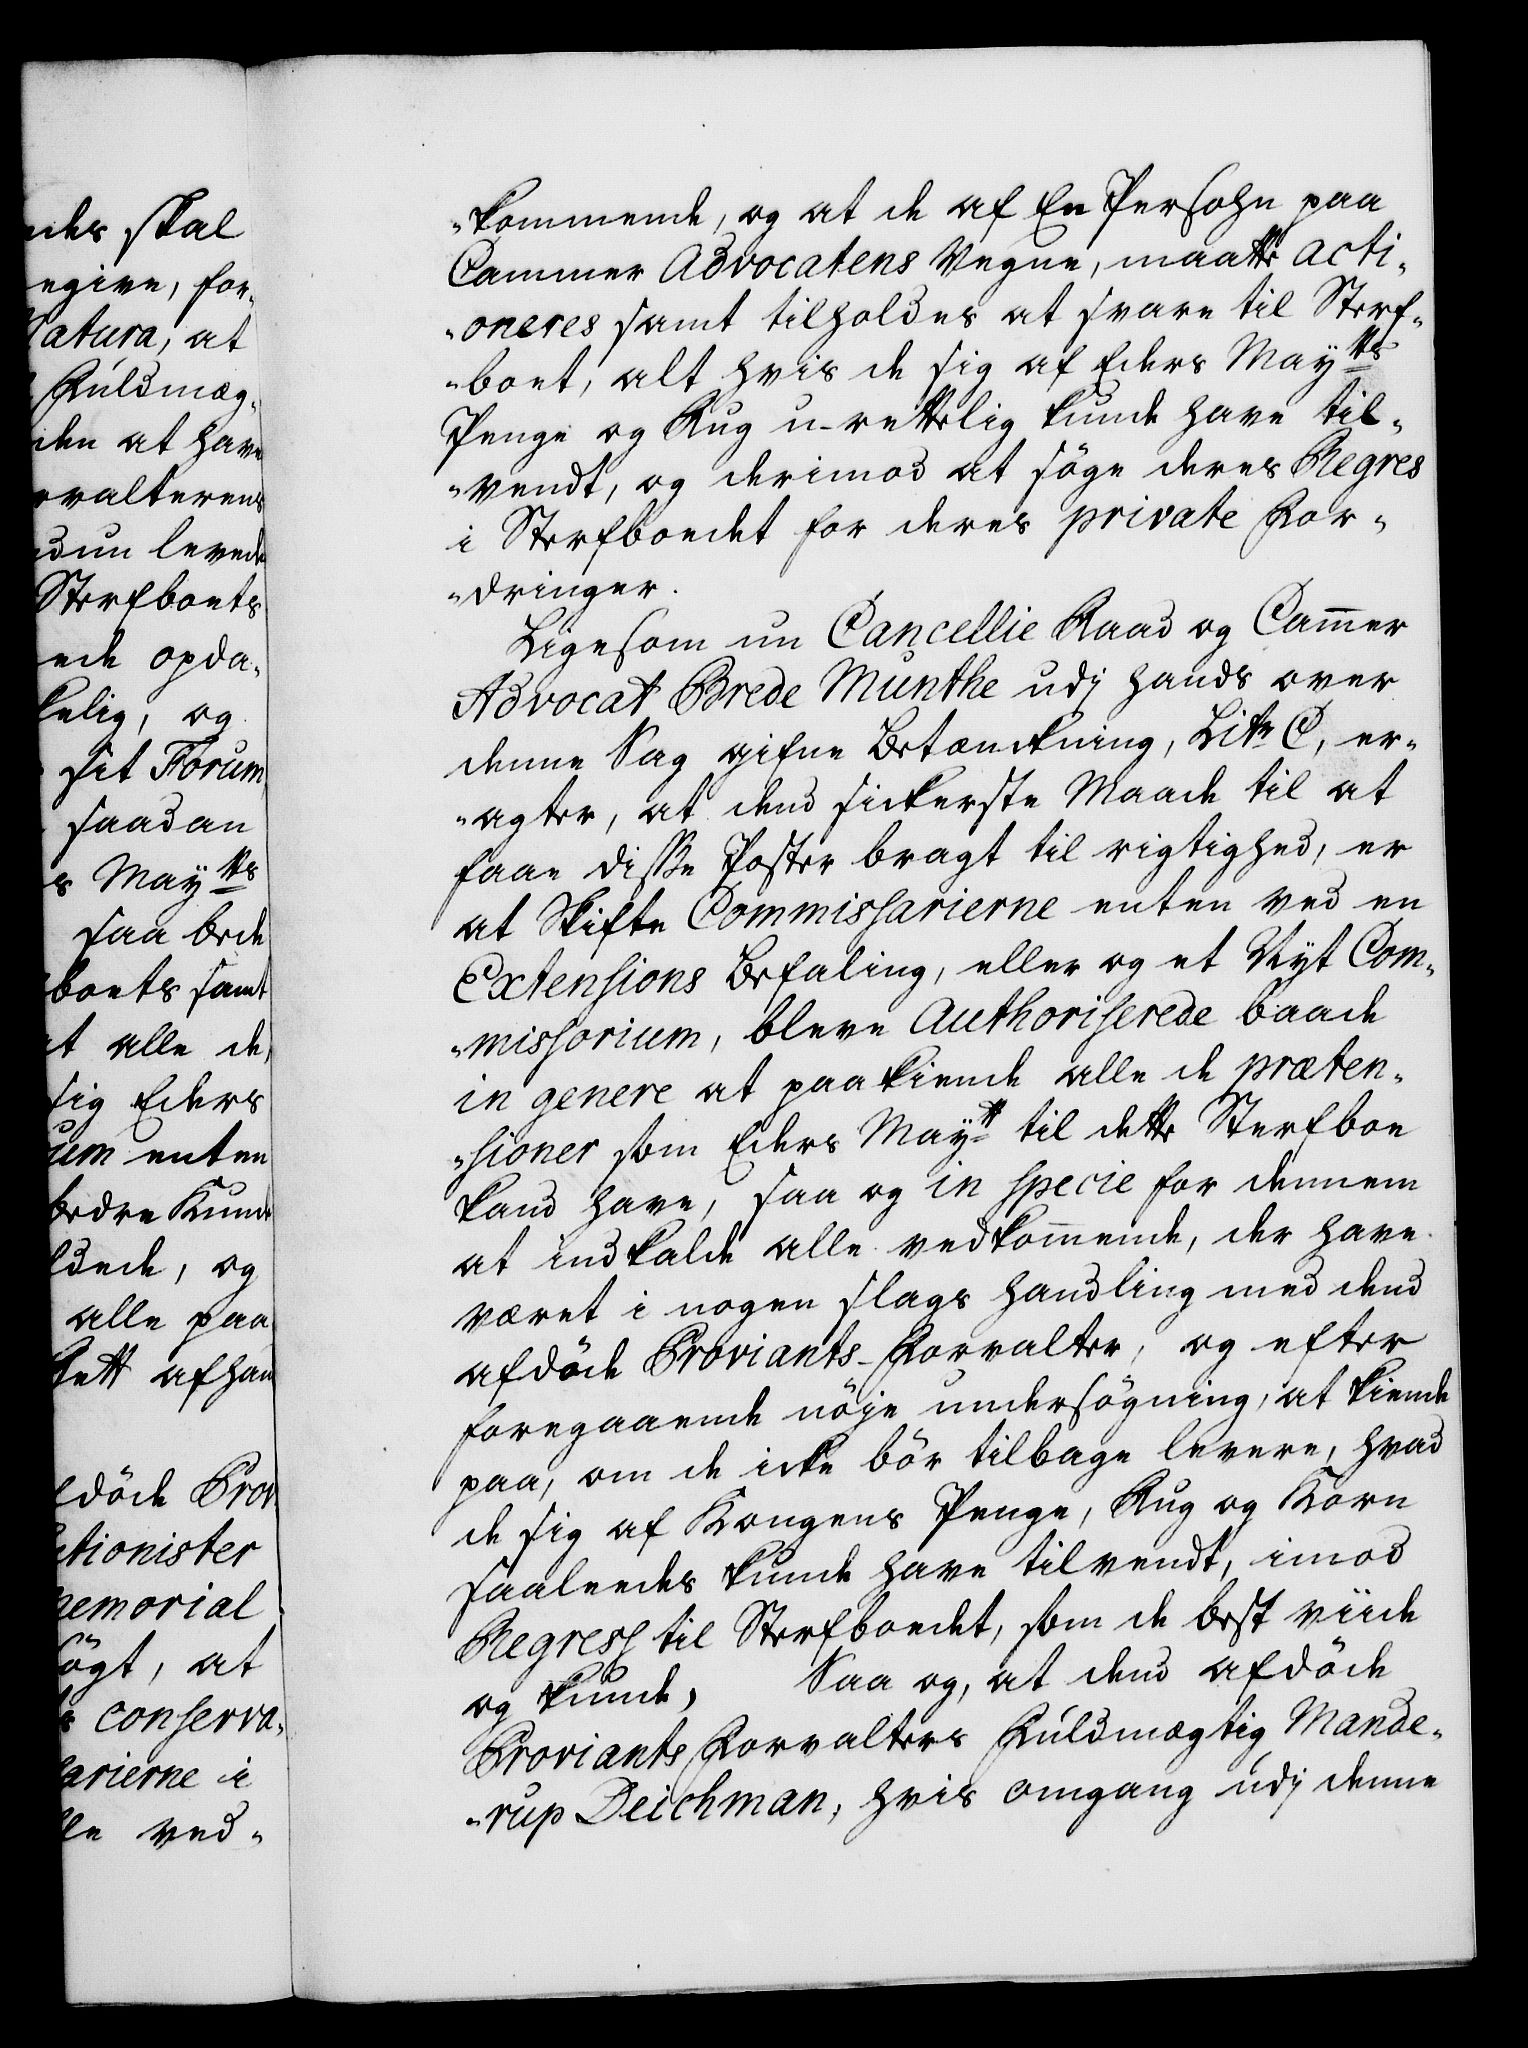 ndes skal
egive, for-
Natura, at
Fuldmæg-
den at have
rvalterens
levede
Sterfboets
ede opda-
kelig, og
sit Forum
saadan
s Maytts
saa vede
boets samt
t alle de,
sig Eders
ium enten
bedre Kunde
ldede, og
alle paa
Rett afhan
fdöde Prov
utionister
Memorial
sögt, at
s conserva-
sarierne i
lle ved-
-kommende, og at de af En Persohn paa
Cammer Advocatens Vegne, maatte acti-
-oneres samt tilholdes at svare til Sterf-
-boet, alt hvis de sig af Eders Maytts
Penge og Rug u-rettelig kunde have til-
-vendt, og derimod at söge deres Regres
i Sterfboedet for deres private For-
-dringer.
Ligesom nu Cancellie Raad og Cammer
Advocat Brede Munthe udj hands over
denne Sag gifne Betænckning, Litr C, er-
-agter, at dend sickerste Maade til at
faae disse Poster bragt til rigtighed, er
at Skifte Commissarierne enten ved en
Extensions Befaling, eller og et Nyt Com-
-missorium, bleve Authoriserede baade
in genere at paakiende alle de præten-
-sioner som Eders Maytt til dette Sterfboe
kand have, saa og in specie for dennem
at indkalde alle vedkommende, der have
været i nogen slags handling med dend
afdöde Proviants-Forvalter, og efter
foregaaende nöje undersögning, at kiende
paa, om de icke bör tilbage levere, hvad
de sig af Kongens Penge, Rug og Korn
saaleedes kunde have tilvendt, imod
Regress til Sterfboedet, som de best viide
og kunde, Saa og, at dend afdöde
Proviants Forvalters Fuldmægtig Mande-
-rup Deichman, hvis omgang udj denne